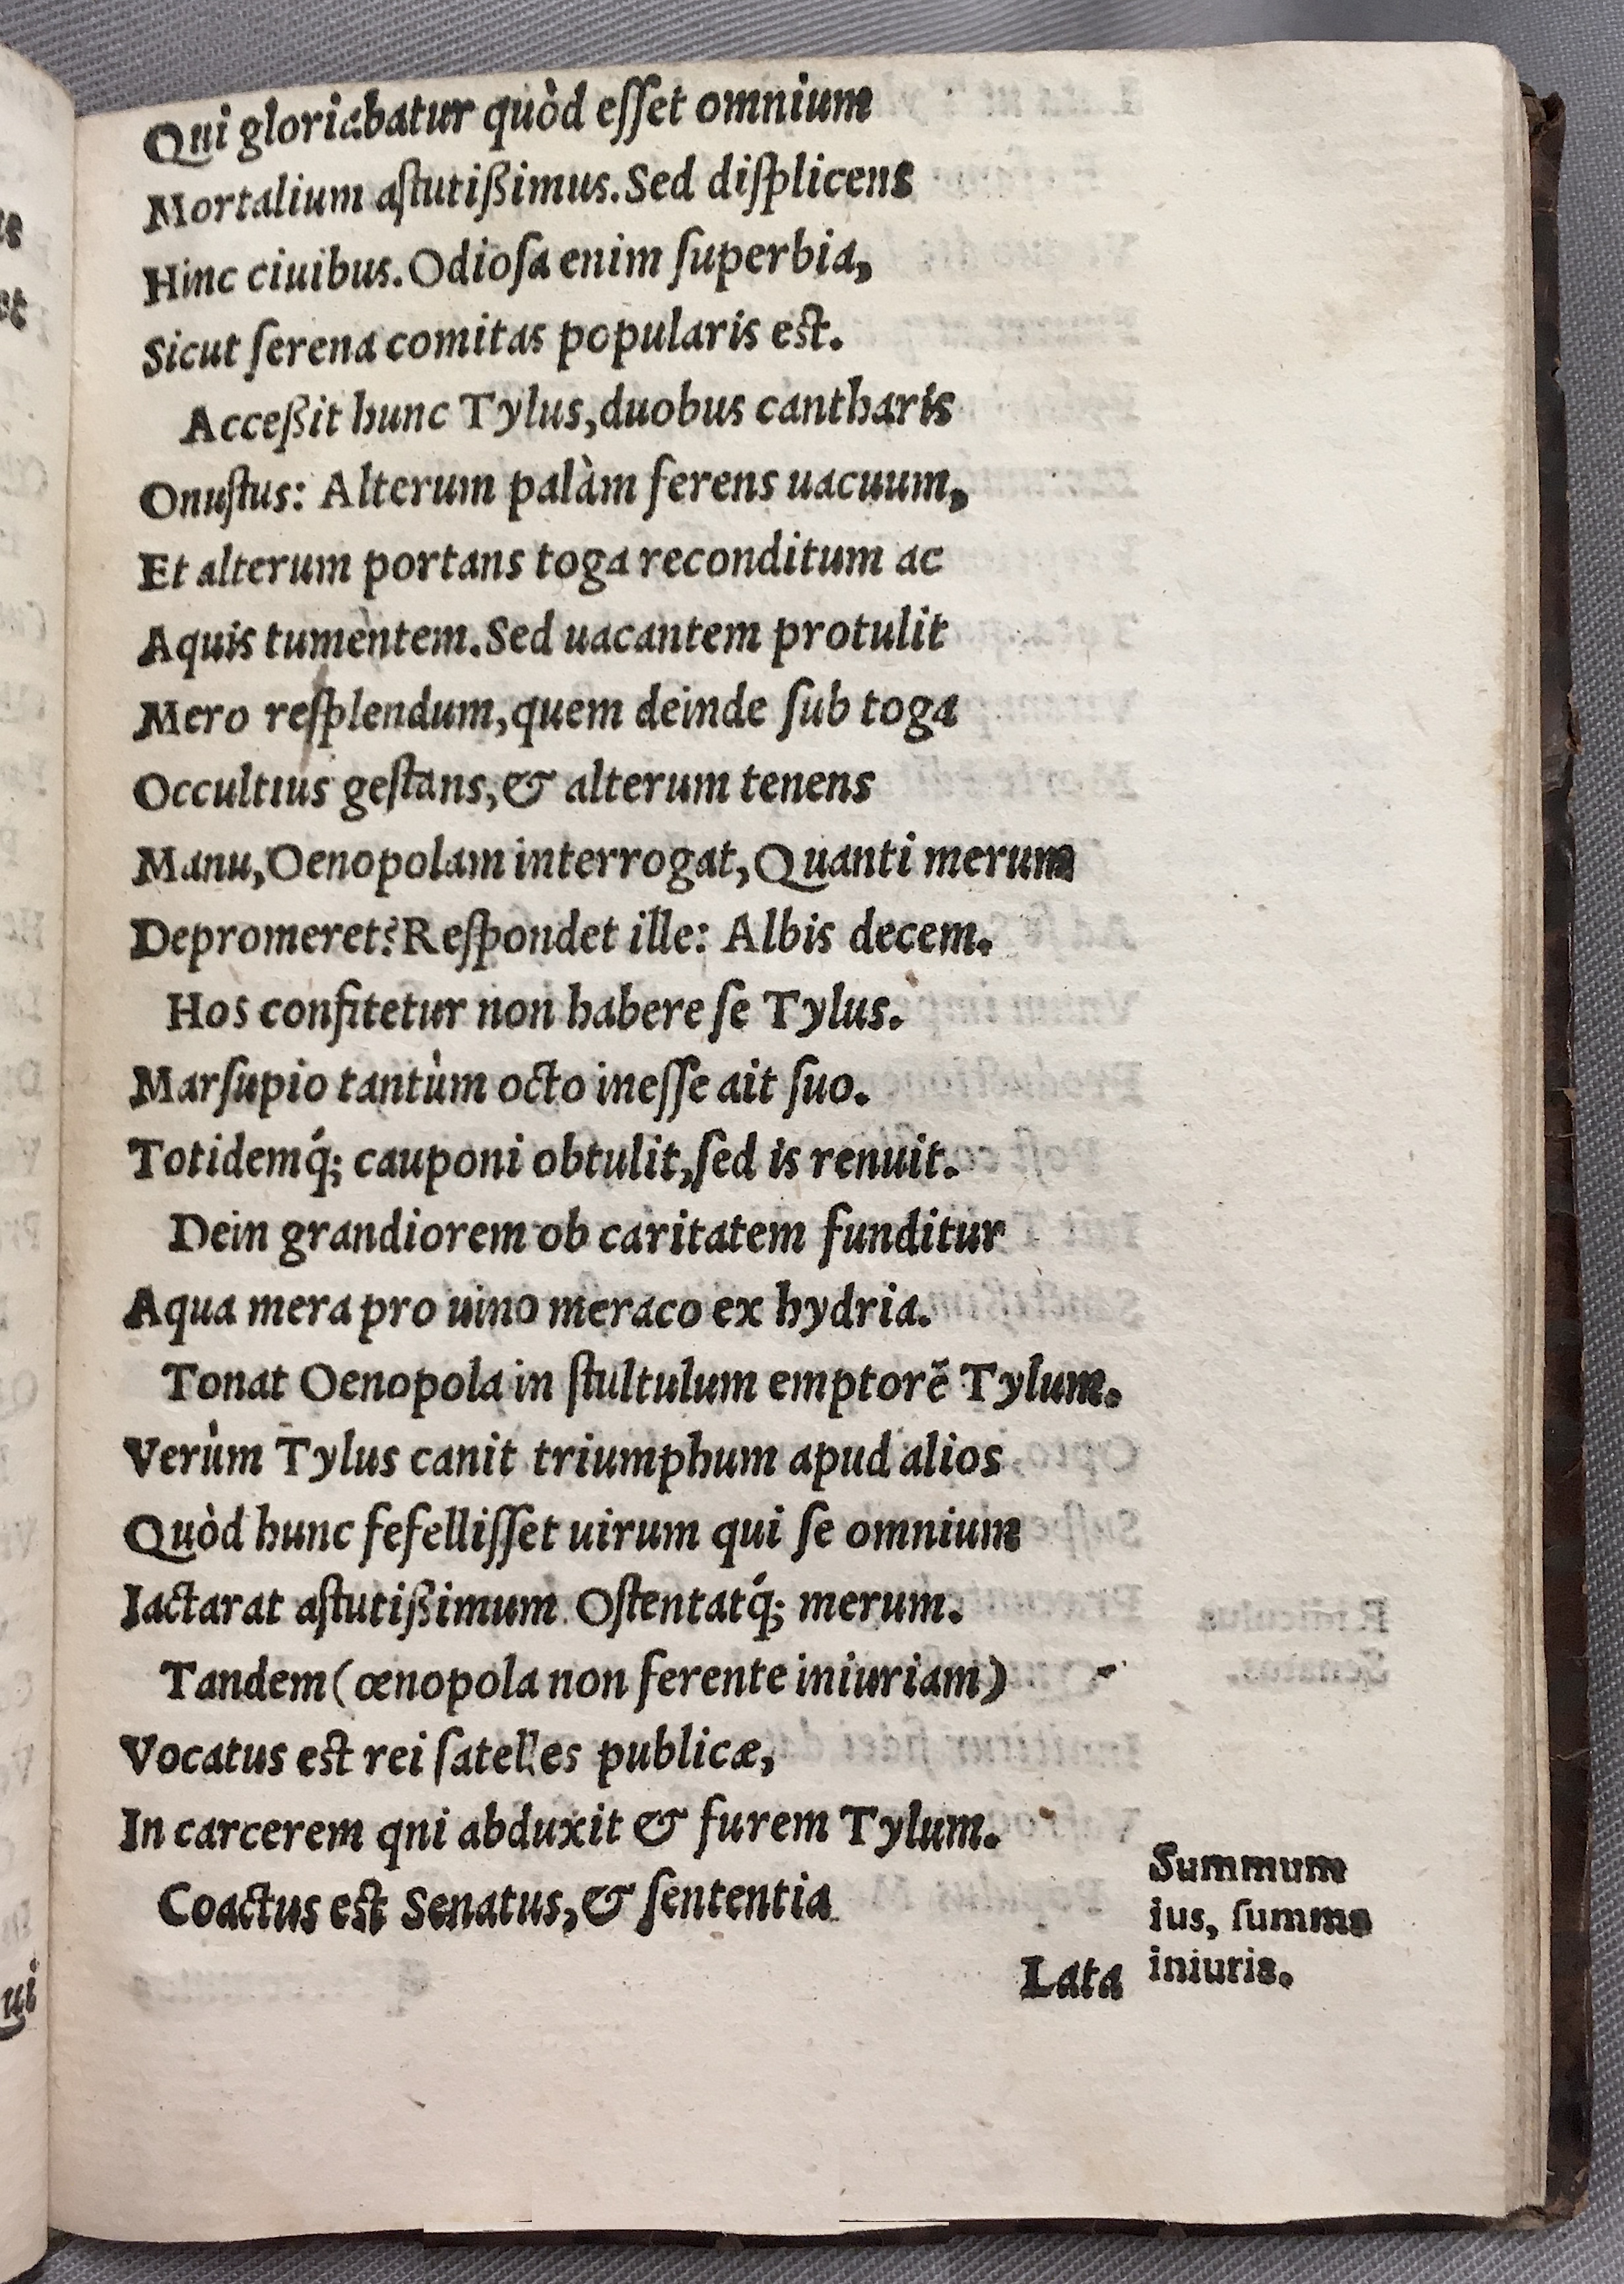 Qui gloriabatur quòd eſſet omnium
Mortalium aſtutißimus. Sed diſplicens
Hinc ciuibus. Odioſa enim ſuperbia,
Sicut ſerena comitas popularis est.
Acceßit hunc Tylus, duobus cantharis
Onuſtus: Alterum palàm ferens uacuum,
Et alterum portans toga reconditum ac
Aquis tumentem. Sed uacantem protulit
Mero reſplendum, quem deinde ſub toga
Occultius geſtans, & alterum tenens
Manu, Oenopolam interrogat, Quanti merum
Depromeret? Reſpondet ille: Albis decem.
Hos confitetur non habere ſe Tylus.
Marſupio tantùm octo ineſſe ait ſuo.
Totidemq́; cauponi obtulit, ſed is renuit.
Dein grandiorem ob caritatem funditur
Aqua mera pro uino meraco ex hydria.
Tonat Oenopola in ſtultulum emptorē Tylum.
Verùm Tylus canit triumphum apud alios
Quòd hunc fefelliſſet uirum qui ſe omnium
Iactarat aſtutißimum. Oſtentatq́; merum.
Tandem (œnopola non ferente iniuriam)
Vocatus est rei ſatelles publicæ,
In carcerem qni abduxit & furem Tylum.
Coactus est Senatus, & ſententia
Lata
Summum
ius, ſumma
iniuria.
ui